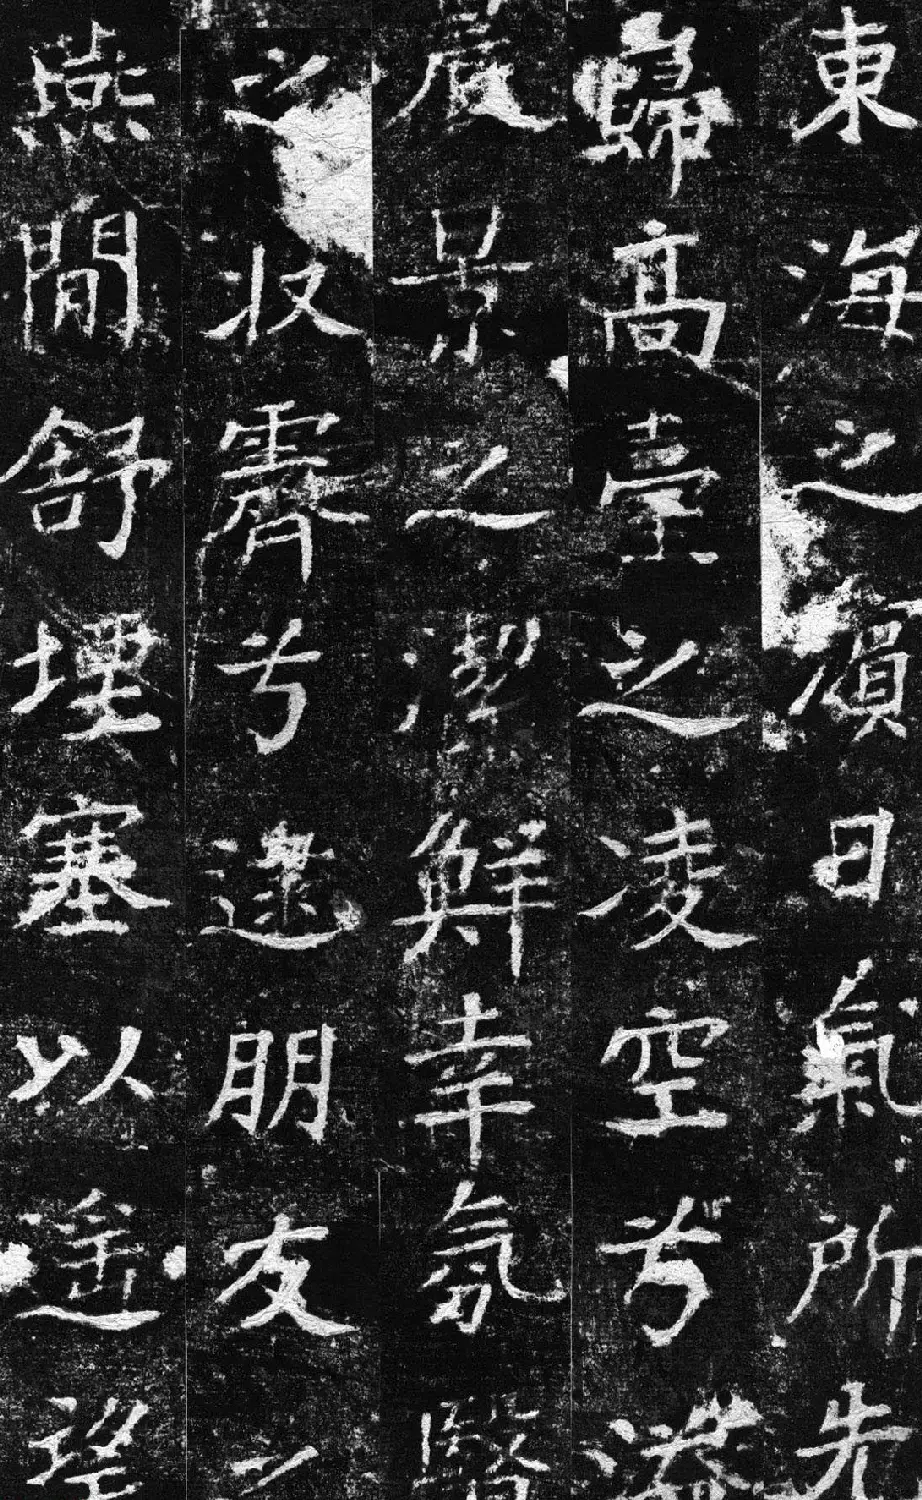 東海之濱日氣所先
歸高臺之凌空兮溢
晨景之潔鮮幸氛翳
之收霽兮逮朋友之
燕閒舒堙塞以遙望